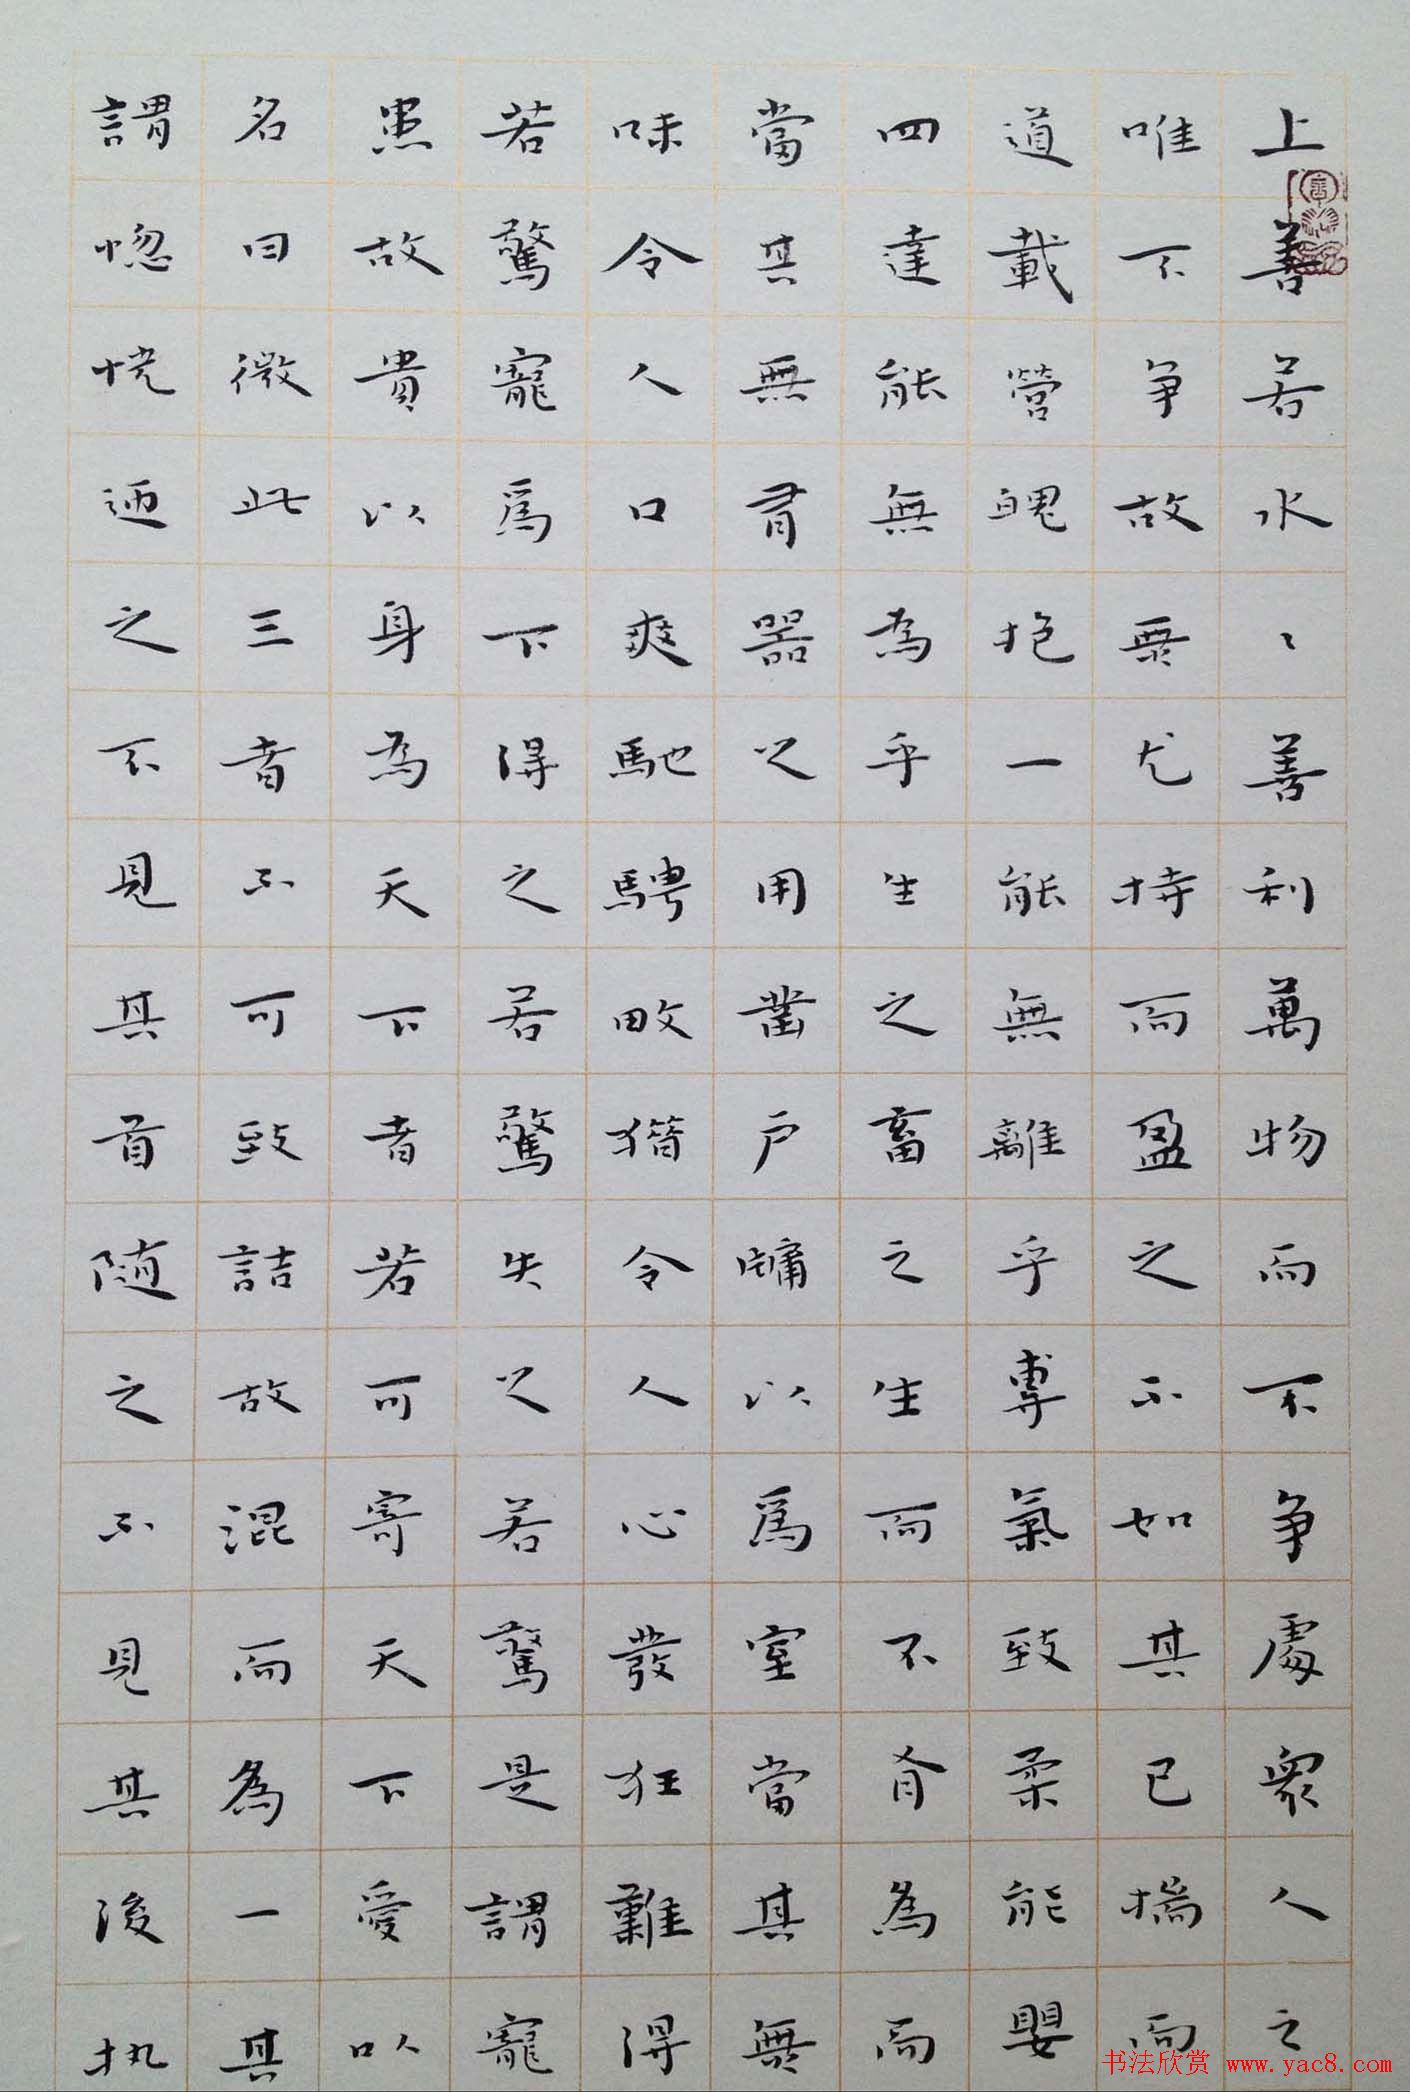 上善若水〻善利萬物而不争處衆人之
唯不争故無尤持而盈之不如其已揣而
道載營魄抱一能無離乎專氣致柔能嬰
四達能無為乎生之畜之生而不有為而
當其無有器之用鑿户牖以為室當其無
味令人口爽馳騁畋獵令人心發狂難得
若驚寵為下得之若驚失之若驚是謂寵
患故貴以身為天下者若可寄天下愛以
名曰微此三者不可致詰故混而為一其
謂惚恍迎之不見其首随之不見其後执
书法欣赏 www.yac8.com